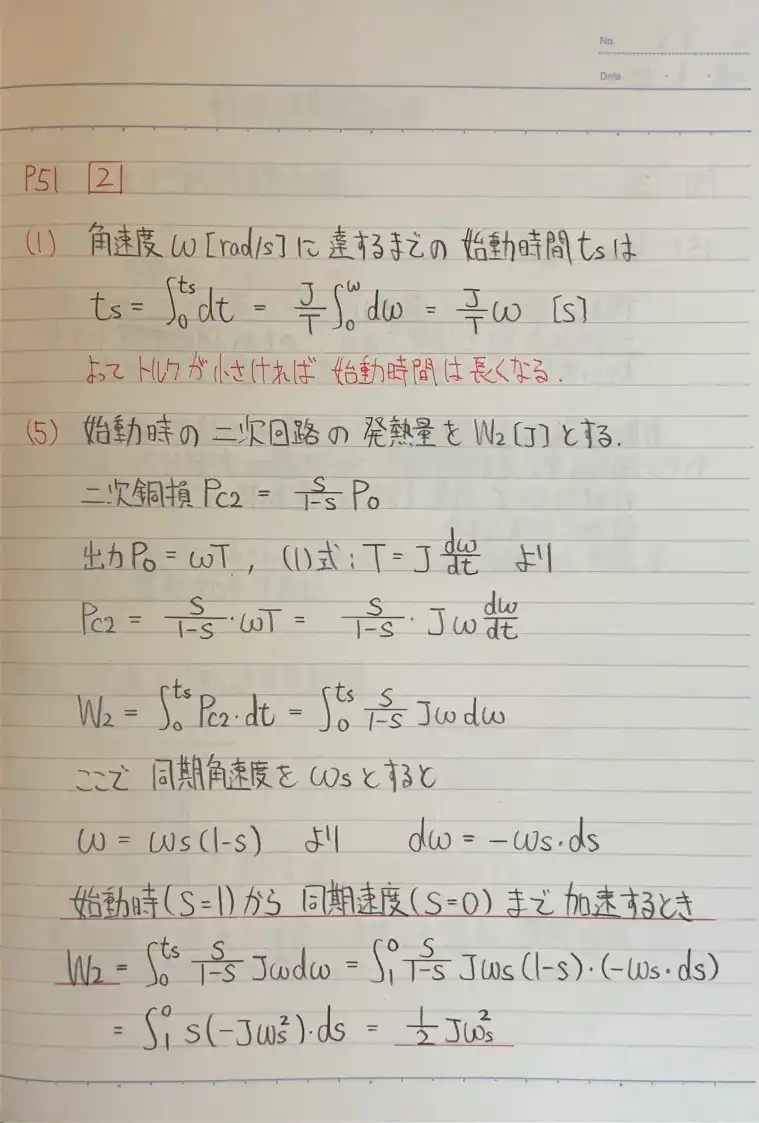 No.
Date
P51 [2]
(1) 角速度 ω [rad/s] に達するまでの始動時間 ts は
ts = ∫₀^ts dt = J/T ∫₀^ω dω = J/T ω [s]
よってトルクが小さければ始動時間は長くなる.
(5) 始動時の二次回路の発熱量を W₂ [J] とする.
二次銅損 Pc2 = s/(1-s) Po
出力 Po = ωT, (1)式; T = J dω/dt より
Pc2 = s/(1-s)・ωT = s/(1-s)・Jω dω/dt
W₂ = ∫₀^ts Pc2・dt = ∫₀^ts s/(1-s) Jω dω
ここで 同期角速度を ωs とすると
ω = ωs(1-s) より dω = -ωs・ds
始動時(s=1)から同期速度(s=0)まで加速するとき
W₂ = ∫₀^ts s/(1-s) Jωdω = ∫₁^0 s/(1-s) Jωs(1-s)・(-ωs・ds)
= ∫₁^0 s(-Jωs²)・ds = 1/2 Jωs²